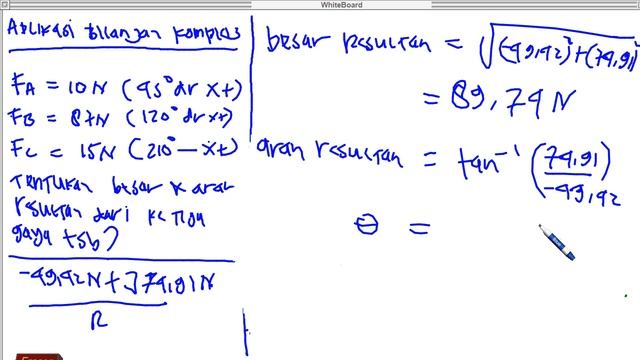 WhiteBoard
Aplikasi Bilangan Kompleks
FA = 10N (45° dr x+)
FB = 87N (120° dr x+)
FC = 15N (210° — x+)
Tentukan besar & arah
resultan dari ketiga
gaya tsb?
-49,92N + J 74,91N
R
besar resultan = √(-49,92)² + (74,91)²
= 89,74 N
arah resultan = tan⁻¹ (74,91 / -49,92)
θ =